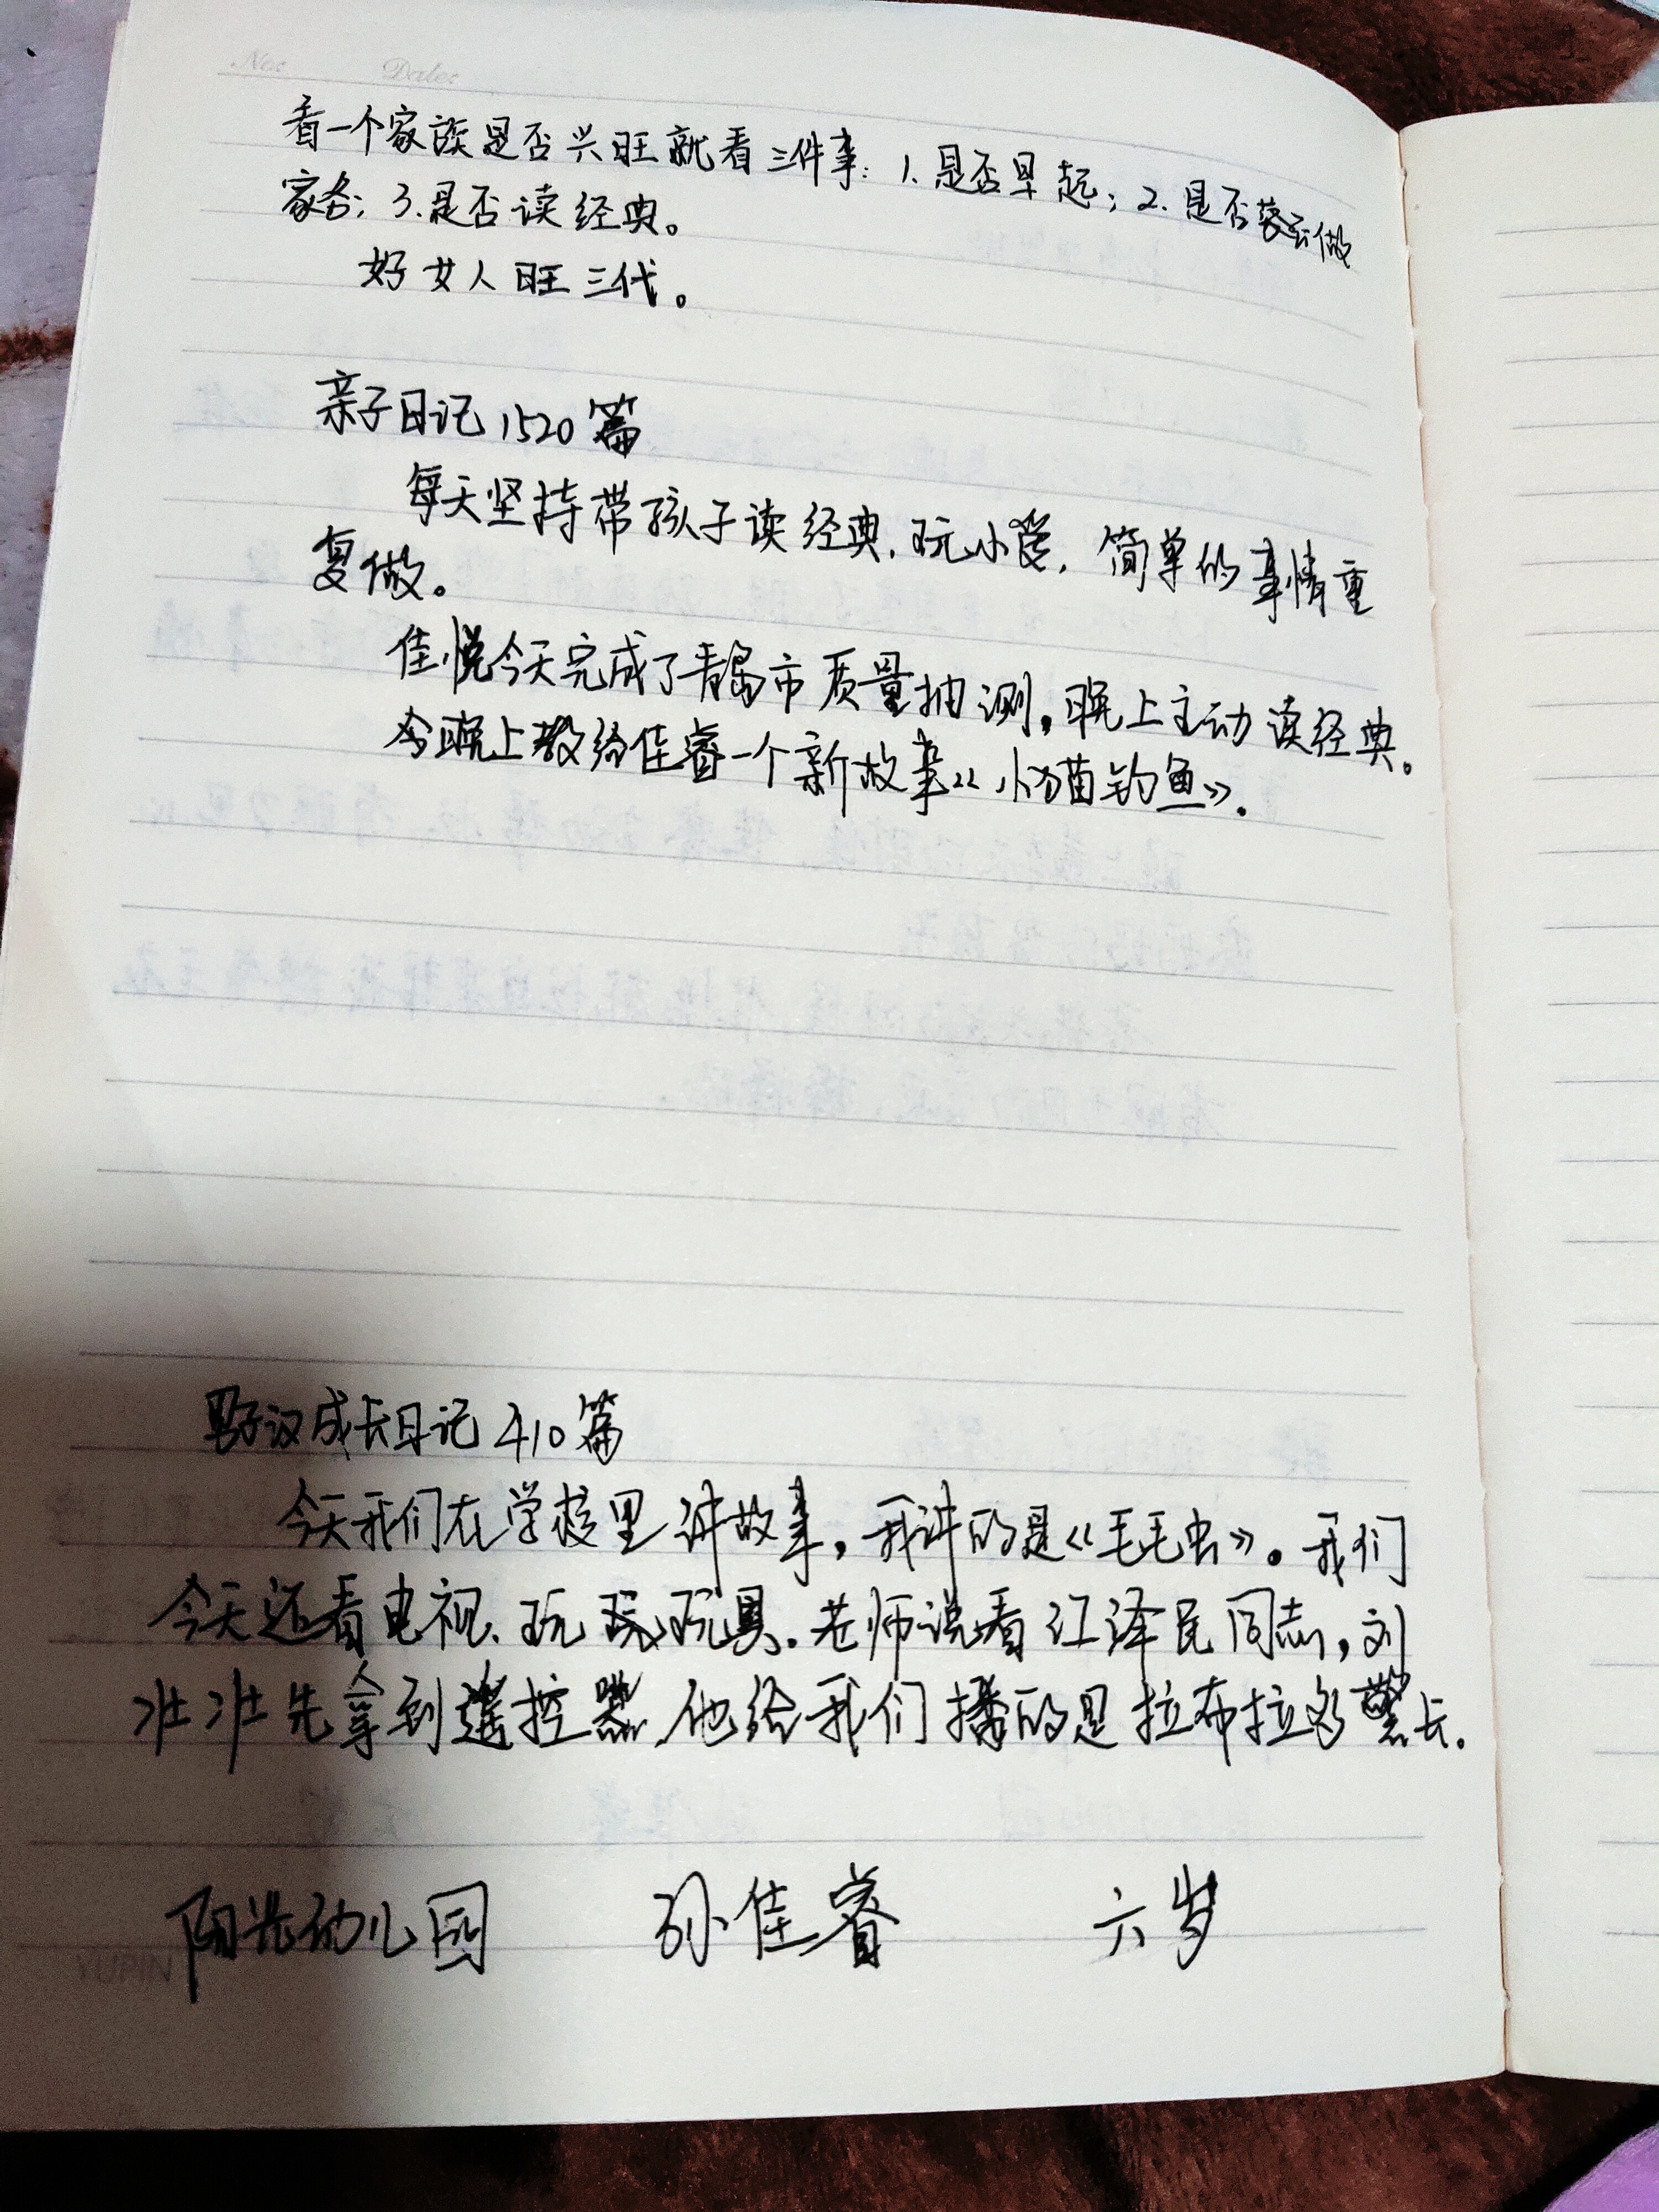 No: Date:
看一个家族是否兴旺就看三件事：1.是否早起；2.是否做
家务；3.是否读经典。
好女人旺三代。
亲子日记1520篇
每天坚持带孩子读经典，玩小篓，简单的事情重
复做。
佳悦今天完成了青岛市质量抽测，晚上主动读经典。
今晚上教给佳睿一个新故事《小猫钓鱼》。
男子汉成长日记410篇
今天我们在学校里讲故事，我讲的是《毛毛虫》。我们
今天还看电视、玩玩玩具。老师说看江泽民同志，刘
准准先拿到遥控器，他给我们播的是拉布拉多警长。
阳光幼儿园 孙佳睿 六岁
YUPIN